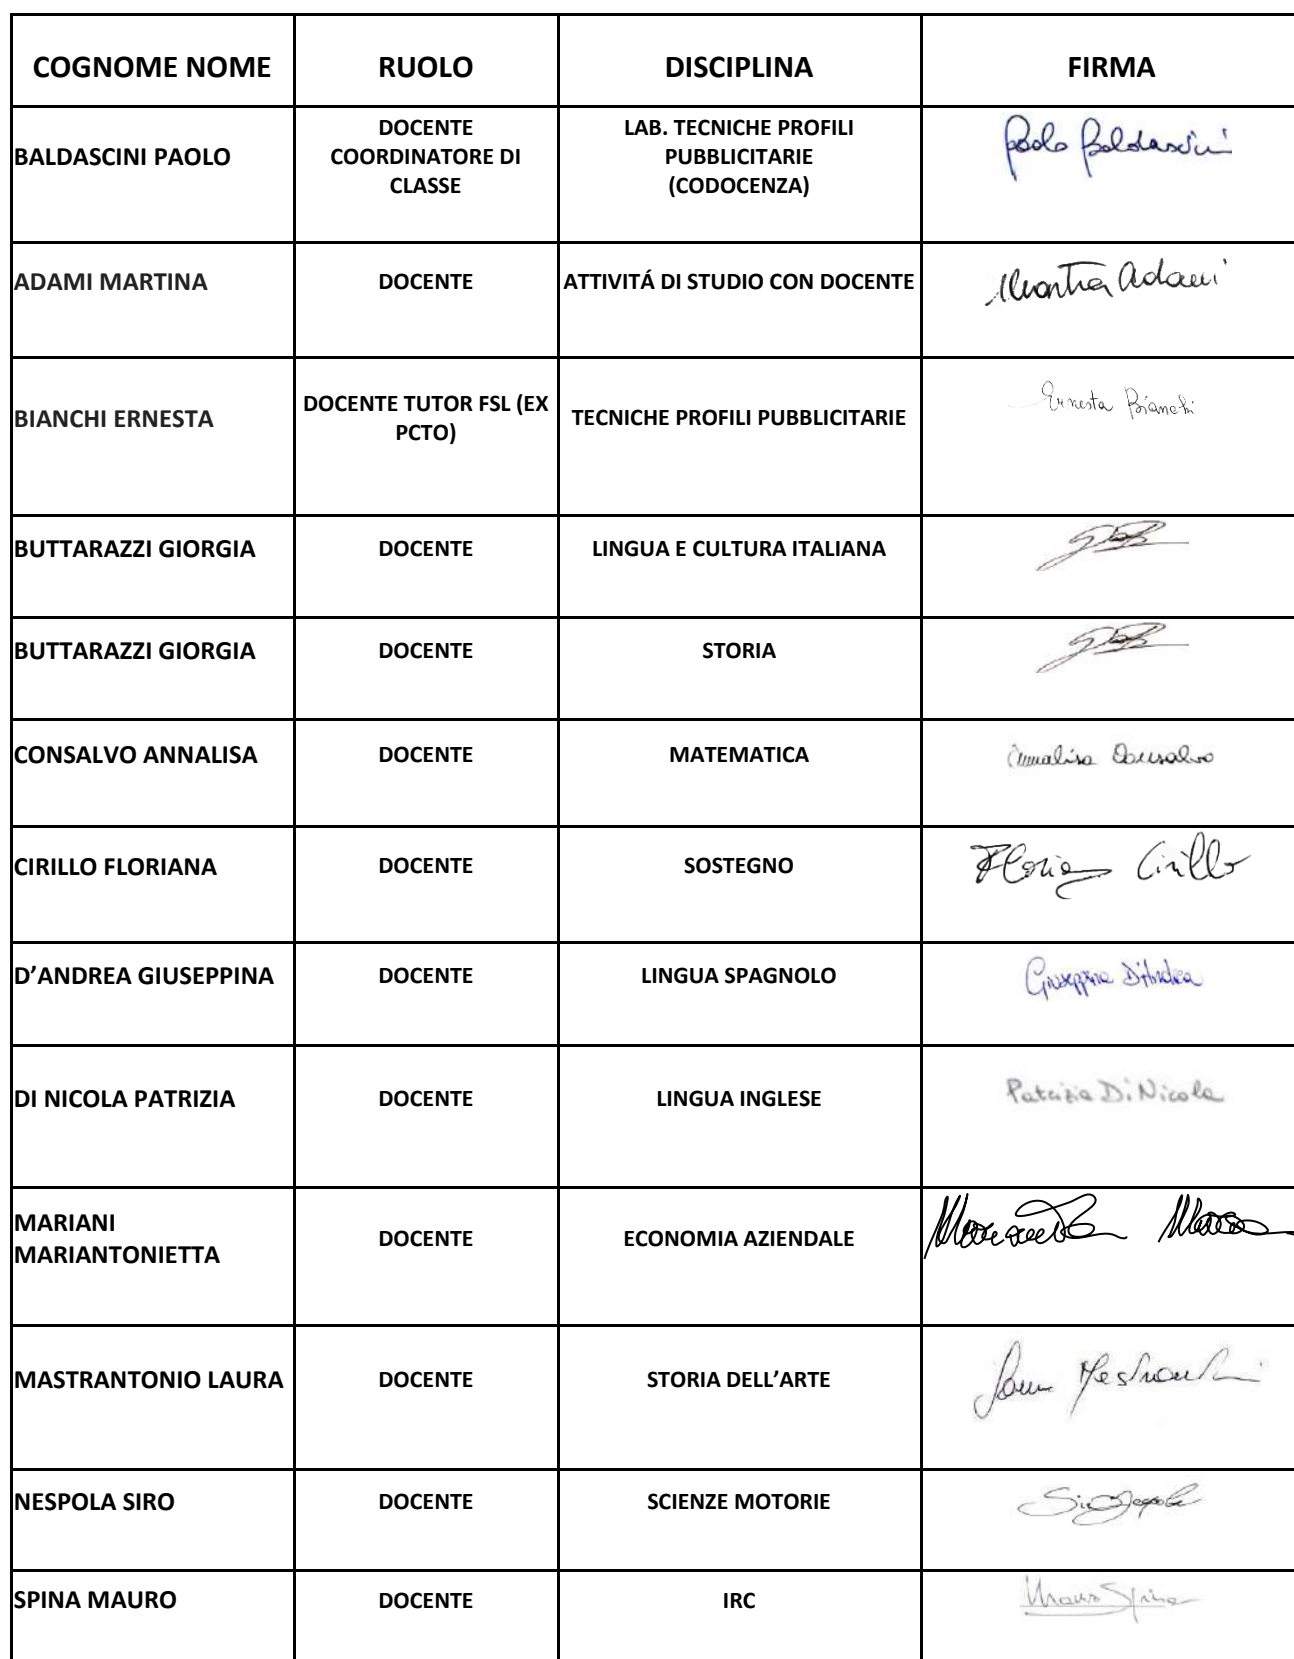 COGNOME NOME RUOLO DISCIPLINA FIRMA
BALDASCINI PAOLO
DOCENTE
COORDINATORE DI
CLASSE
LAB. TECNICHE PROFILI
PUBBLICITARIE
(CODOCENZA)
Paolo Baldascini
ADAMI MARTINA DOCENTE ATTIVITÁ DI STUDIO CON DOCENTE Martina Adami
BIANCHI ERNESTA
DOCENTE TUTOR FSL (EX
PCTO)
TECNICHE PROFILI PUBBLICITARIE
Ernesta Bianchi
BUTTARAZZI GIORGIA DOCENTE LINGUA E CULTURA ITALIANA
BUTTARAZZI GIORGIA DOCENTE STORIA
CONSALVO ANNALISA DOCENTE MATEMATICA Annalisa Consalvo
CIRILLO FLORIANA DOCENTE SOSTEGNO Cirillo
D’ANDREA GIUSEPPINA DOCENTE LINGUA SPAGNOLO Giuseppina D'Andrea
DI NICOLA PATRIZIA DOCENTE LINGUA INGLESE Patrizia Di Nicola
MARIANI
MARIANTONIETTA
DOCENTE
ECONOMIA AZIENDALE
MASTRANTONIO LAURA DOCENTE STORIA DELL’ARTE
NESPOLA SIRO DOCENTE SCIENZE MOTORIE Siro Nespola
SPINA MAURO DOCENTE IRC Mauro Spina